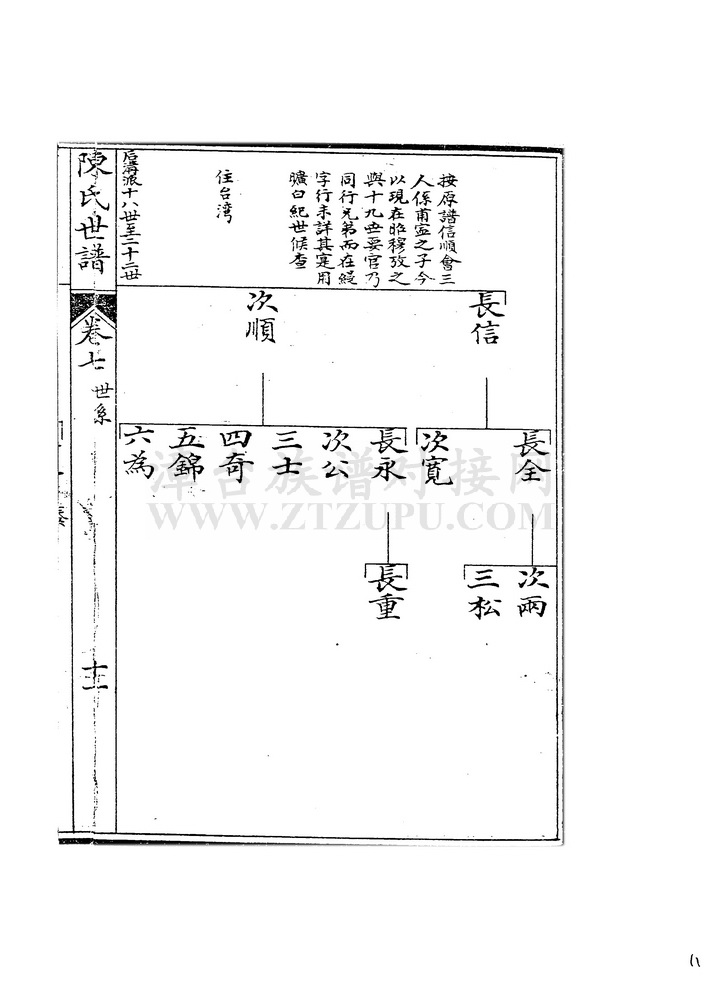 按原譜信順會三
人係甫寔之子今
以現在昭穆攷之
與十九世耍官乃
同行兄弟而在縵
字行未詳其寔用
曠白紀世候查
住台湾
長信
次順
長全
次寬
長永
次公
三士
四奇
五錦
六為
次兩
三松
長重
后溝派十八世至二十二世
陳氏世譜
卷七
世系
十一
漳台族谱对接网
WWW.ZTZUPU.COM